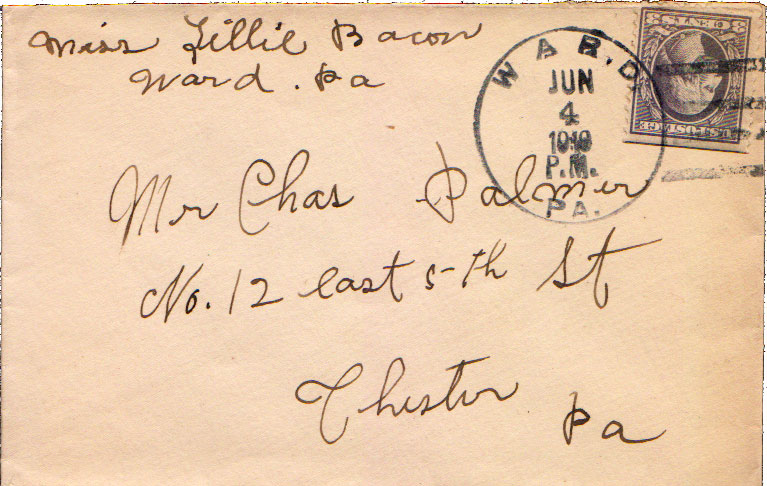 Miss Lillie Bacon
Ward. Pa
WARD.
JUN
4
P.M.
PA.
U.S. POSTAGE
Mr Chas Palmer
No. 12 East 5-th St
Chester
Pa